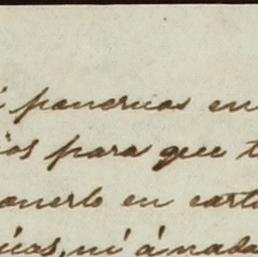 i pancruas en
ios para que t
onerlo en carta
uas, ni á nada